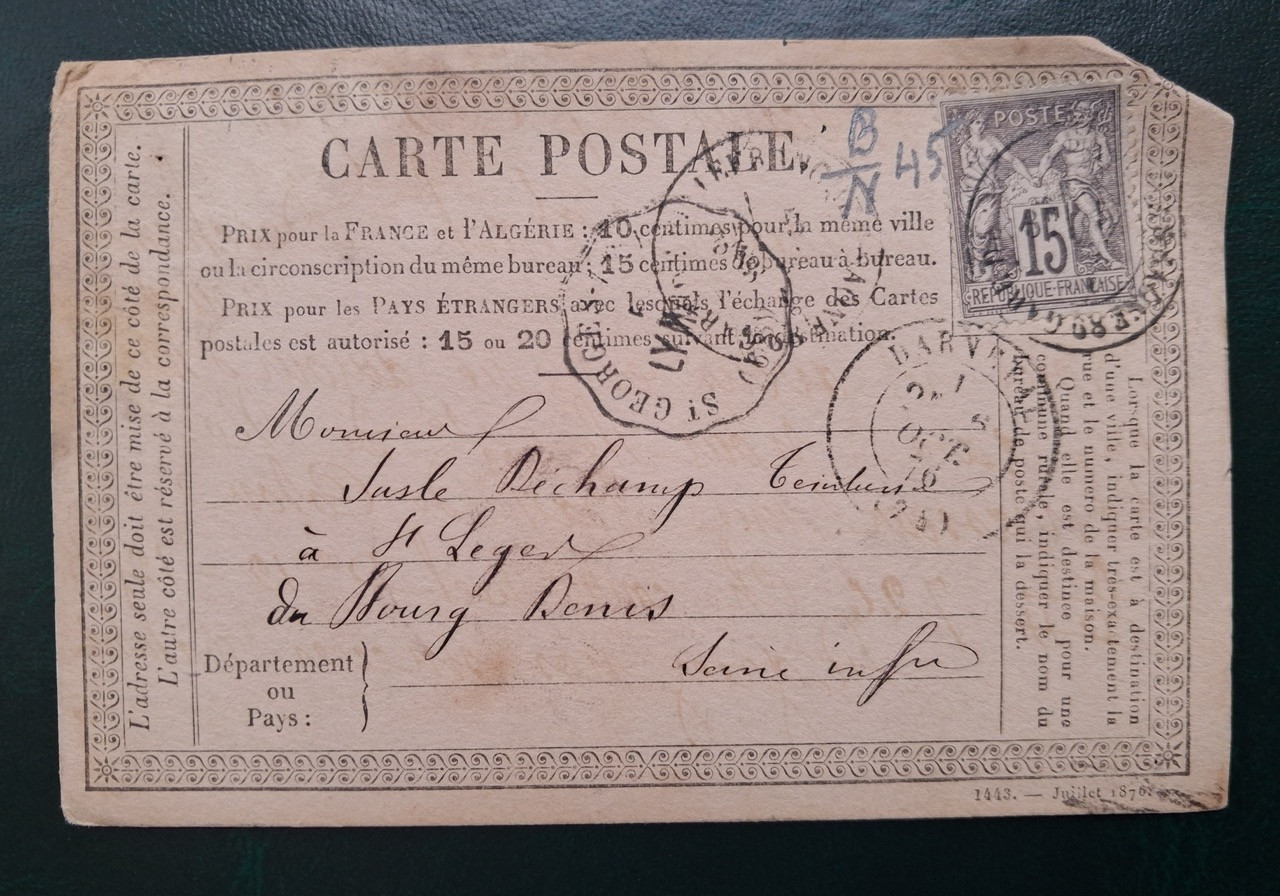 CARTE POSTALE
B
N
45
POSTE
15
REPUBLIQUE-FRANÇAISE
PRIX pour la FRANCE et l'ALGÉRIE : 10 centimes pour la même ville
ou la circonscription du même bureau : 15 centimes de bureau à bureau.
PRIX pour les PAYS ÉTRANGERS, avec lesquels l'échange des Cartes
postales est autorisé : 15 ou 20 centimes suivant la destination.
ST GEORGE
DARNETAL
OCT.
76
Monsieur
Juste Béchamp Teinturier
à St Leger
du Bourg Denis
Département
ou
Pays :
Seine infre
L'adresse seule doit être mise de ce côté de la carte.
L'autre côté est réservé à la correspondance.
Lorsque la carte est à destination
d'une ville, indiquer très-exactement la
rue et le numero de la maison.
Quand elle est destinée pour une
commune rurale, indiquer le nom du
bureau de poste qui la dessert.
1443. — Juillet 1876.